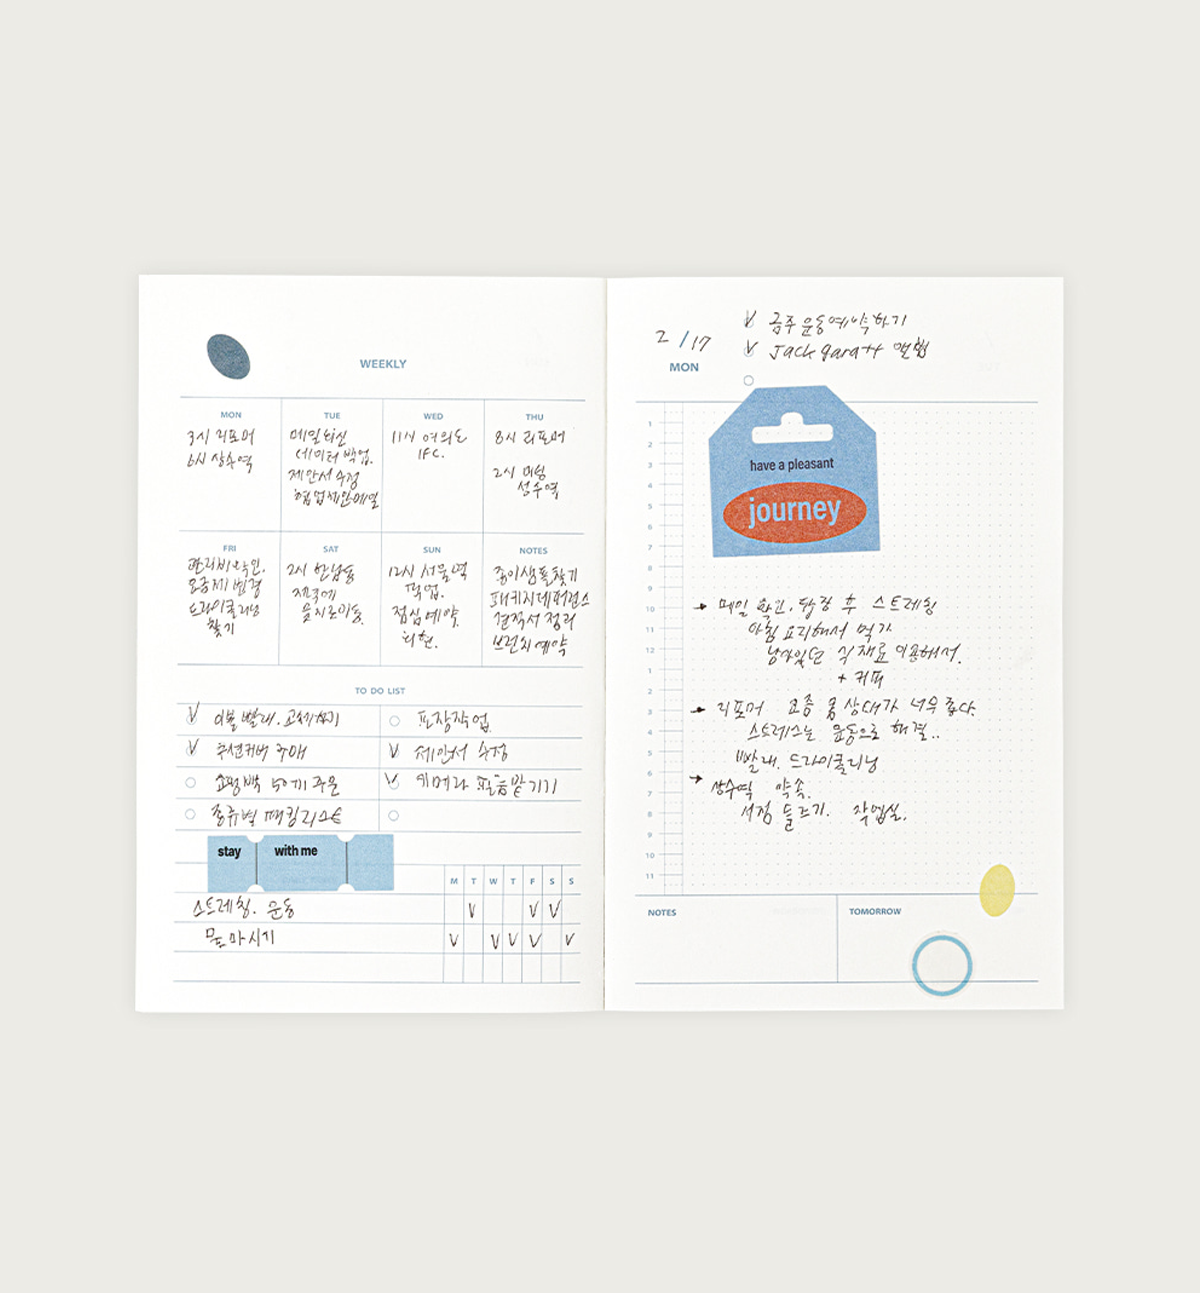 WEEKLY
MON TUE WED THU
3시 리포머
6시 상수역
메일회신
데이터 백업.
제안서 수정
협업제안메일
11시 여의도
IFC.
8시 리포머
2시 미팅
성수역
FRI SAT SUN NOTES
관리비 확인.
요금제 변경
드라이클리닝
찾기
2시 한남동
을지로이동.
12시 서울역
픽업.
점심예약.
종이샘플찾기
패키지레퍼런스
견적서 정리
브런치예약
TO DO LIST
V 이불 빨래.
V 쿠션커버 구매
쇼핑백 50개 주문
종류별 패킹리스트
포장작업
V 제안서 수정
V 카메라 필름맡기기
stay with me
M T W T F S S
스트레칭. 운동 V V V
물 마시기 V V V V V
2/17
MON
V 금주 운동예약하기
V Jack garatt 앨범
have a pleasant
journey
1
2
3
4
5
6
7
8
9
10
11
12
1
2
3
4
5
6
7
8
9
10
11
→ 메일 확인. 답장 후 스트레칭
아침 요리해서 먹기
남아있던 식재료 이용해서.
+ 커피
→ 리포머 요즘 몸 상태가 너무 좋다.
스트레스는 운동으로 해결..
빨래. 드라이클리닝
→ 상수역 약속.
서점 들르기. 작업실.
NOTES
TOMORROW